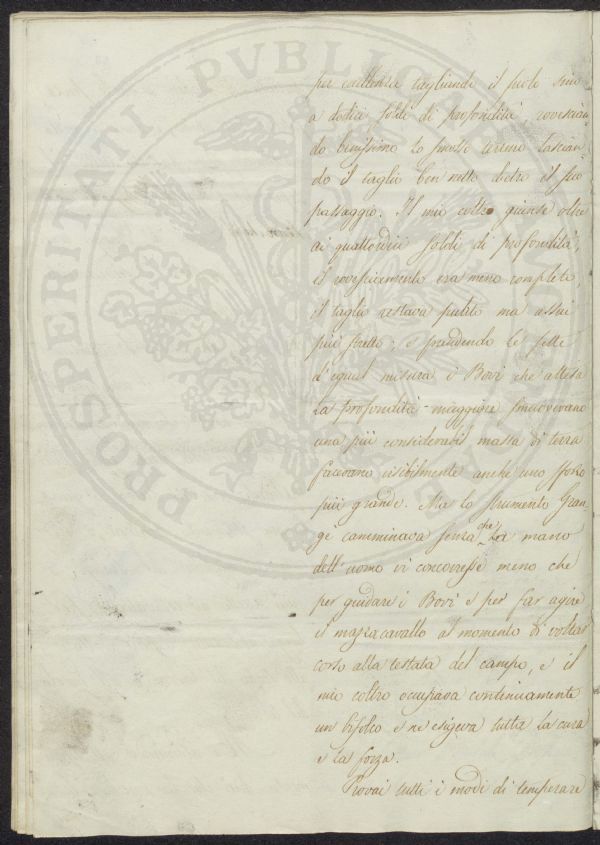 per eccellenza tagliando il suolo sino
a dodici soldi di profondità, rovescian
do benissimo lo smosso terreno lascian
do il taglio ben netto dietro il suo
passaggio. Il mio coltro giunse oltre
ai quattordici soldi di profondità,
il rovesciamento era meno completo,
il taglio restava pulito ma assai
più stretto; e prendendo le fette
d'egual misura i Bovi che attesa
la profondità maggiore smuovevano
una più considerabil massa di terra
facevano visibilmente anche uno sforzo
più grande. Ma lo strumento Gran-
gé camminava senza che la mano
dell'uomo vi concorresse meno che
per guidare i Bovi e per far agire
il mazzacavallo al momento di voltar
corso alla testata del campo, e il
mio coltro occupava continuamente
un bifolco e ne esigeva tutta la cura
e la forza.
Provai tutti i modi di temperare
PROSPERITATI PVBLICAE